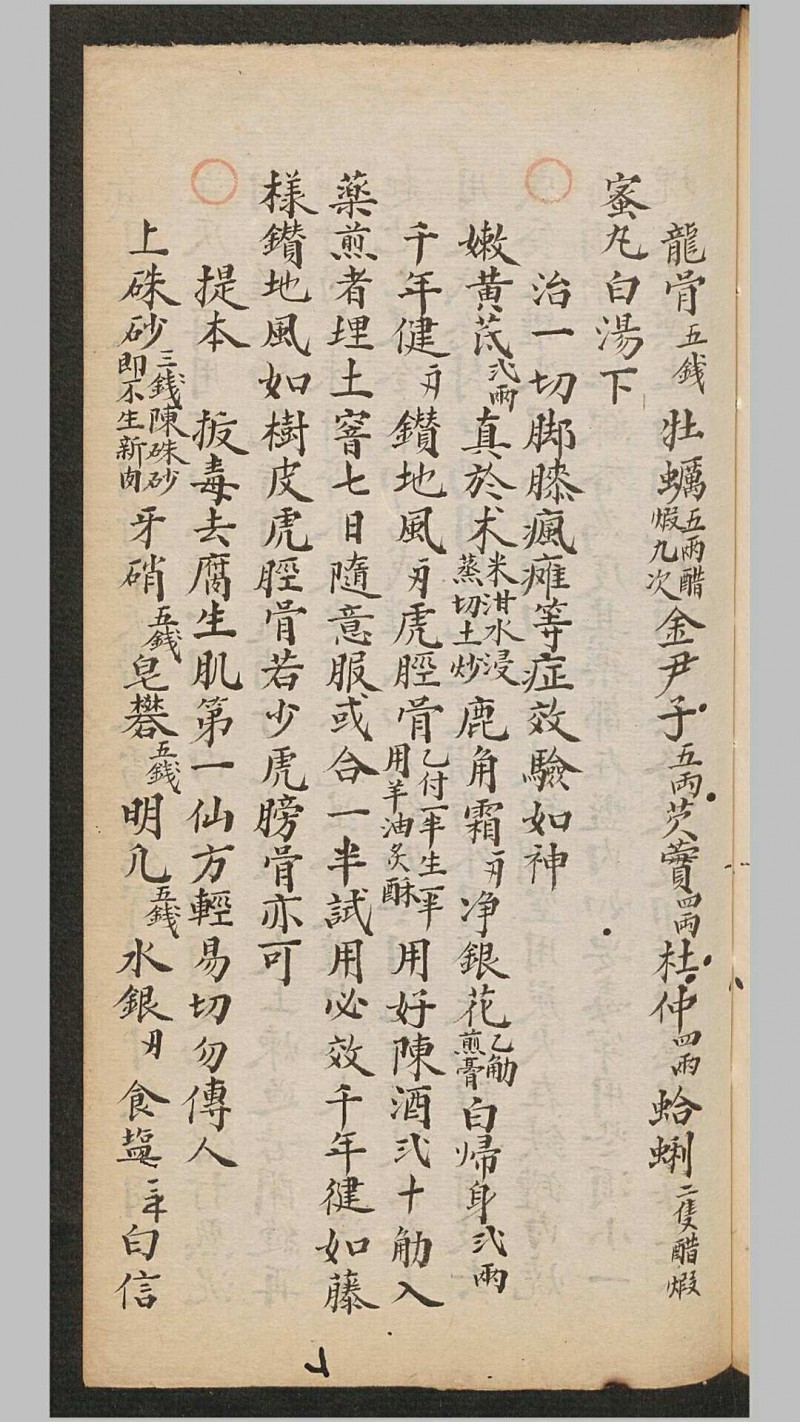 龍骨五錢牡蠣五兩醋煆九次金尹子五两芡蕒四两杜仲四兩蛤蜊二隻醋煆
蜜丸白湯下
治一切脚膝瘋癱等症效驗如神
嫩黄茋弍兩真於术米泔水浸蒸切土炒鹿角霜净銀花乙觔煎膏白歸身弍兩
千年健鑽地風虎脛骨乙付一半生一半用羊油炙酥用好陳酒弍十觔入
藥煎者埋土窖七日隨意服或合一半試用必效千年健如藤
樣鑽地風如樹皮虎脛骨若少虎膀骨亦可
提本 扳毒去腐生肌第一仙方輕易切勿傳人
上硃砂三錢陳硃砂即不生新肉牙硝五錢皂礬五錢明凡五錢水銀食塩白信